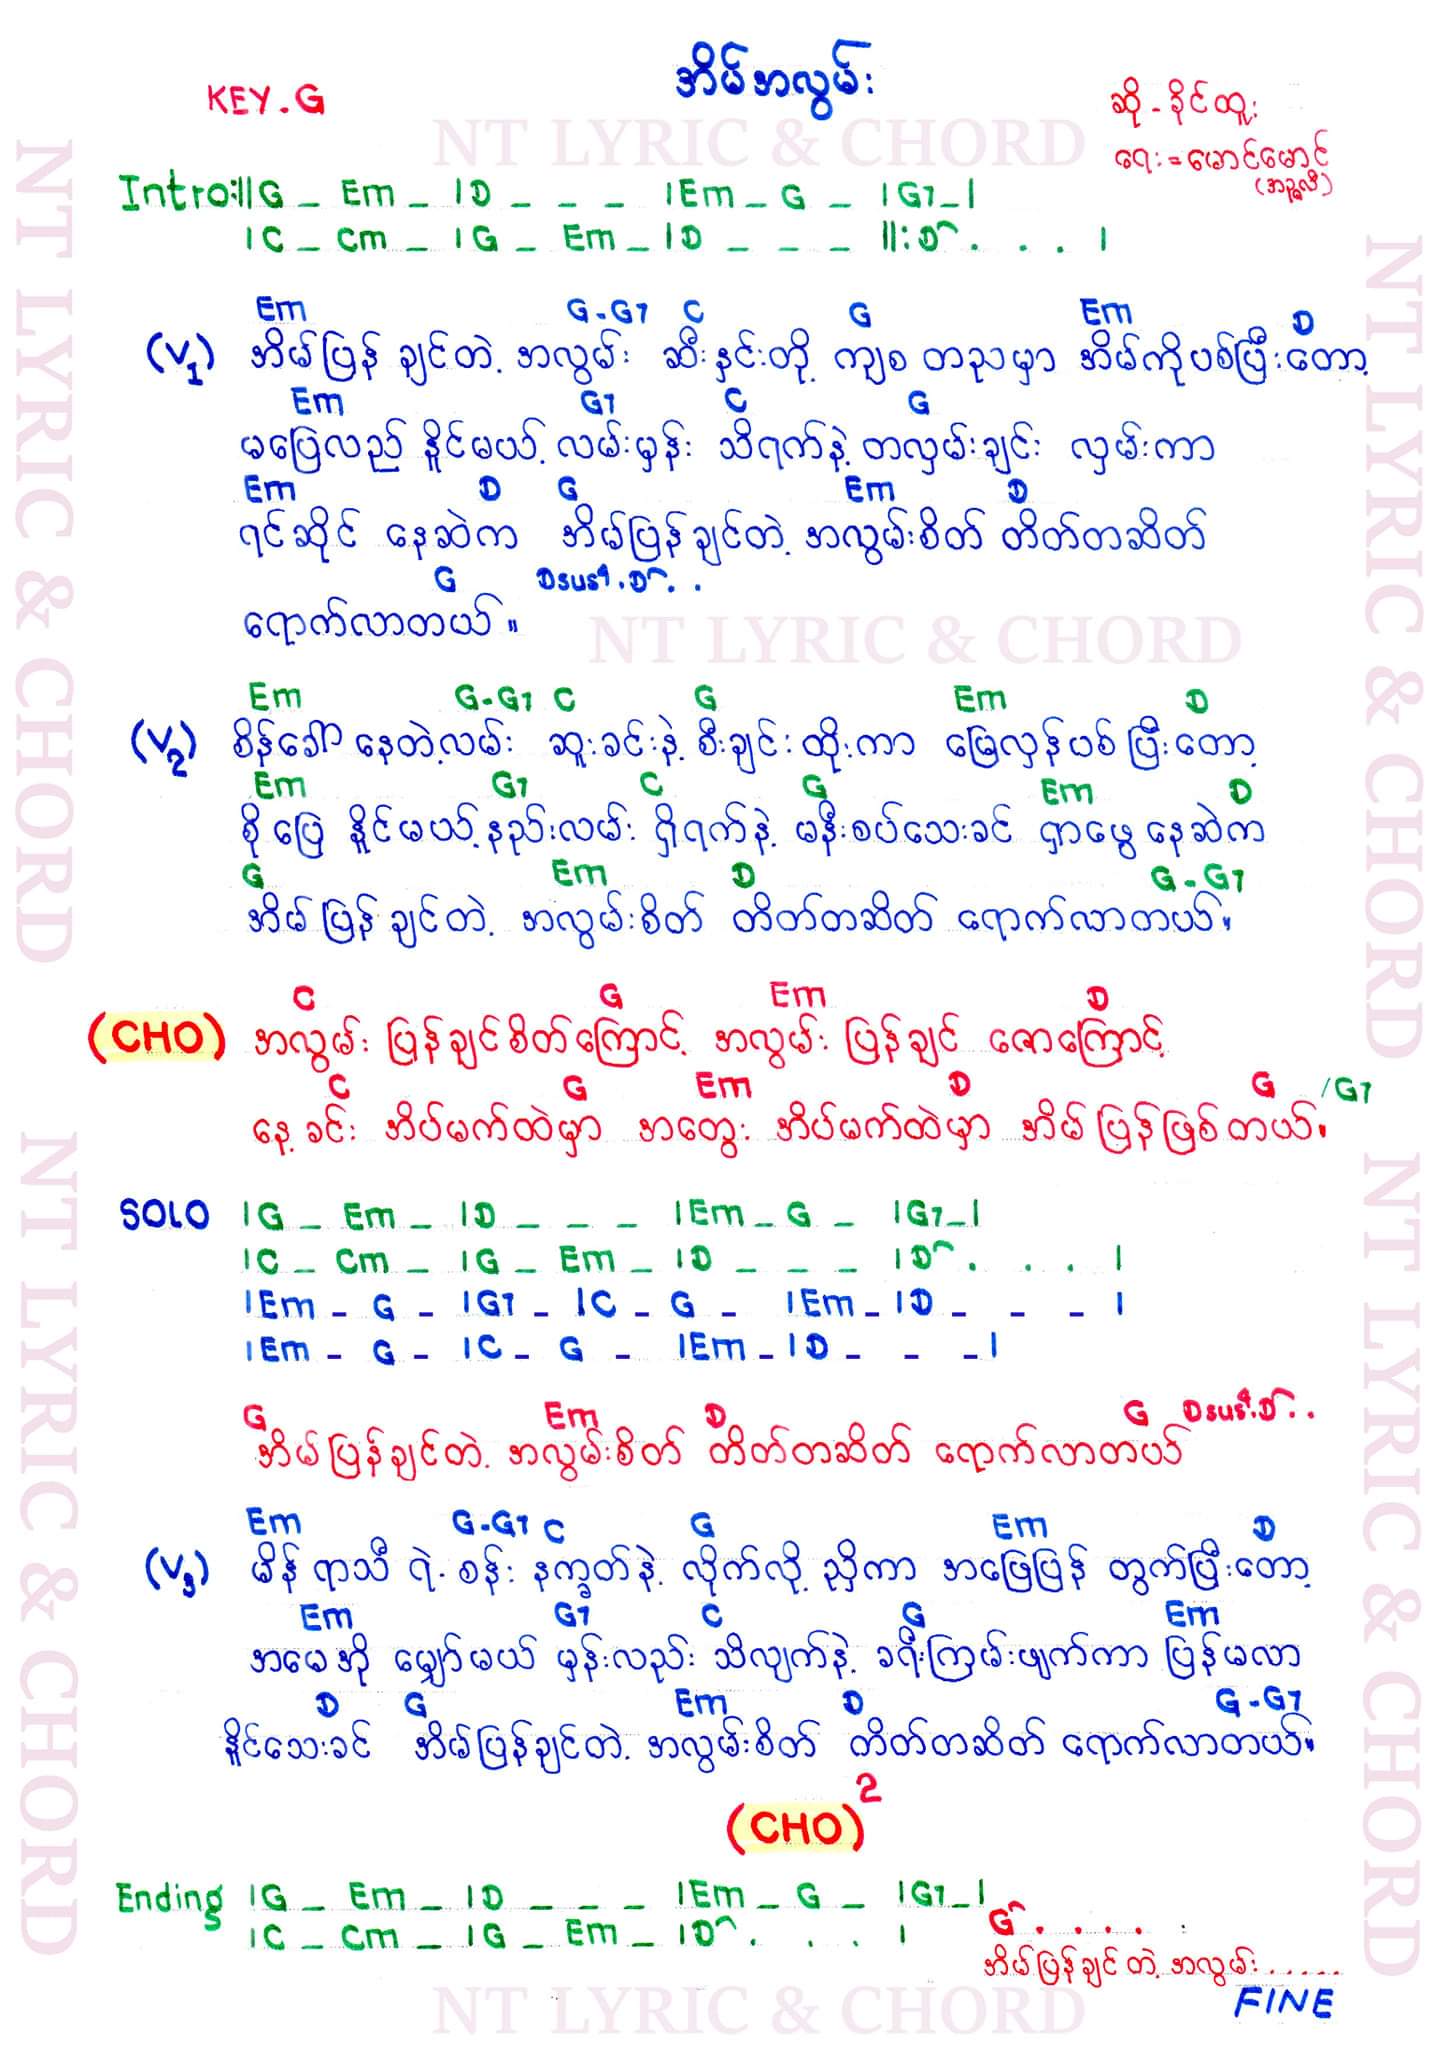 အိမ်အလွမ်း
KEY. G
ဆို - ခိုင်ထူး
ရေး = မောင်မောင်
NT LYRIC & CHORD
Intro:||G _ Em _ |D _ _ _ |Em _ G _ |G7 _|
|C _ Cm _ |G _ Em _ |D _ _ _ ||:D . . . |
Em G-G7 C G Em D
(V1) အိမ်ပြန်ချင်တဲ့ အလွမ်း ဆီးနှင်းတို့ ကျစ တညမှာ အိမ်ကိုပစ်ပြီးတော့
Em G7 C G
မပြေလည် နိုင်မယ့် လမ်းမှန်း သိရက်နဲ့ တလှမ်းချင်း လှမ်းကာ
Em D G Em D
ရင်ဆိုင် နေဆဲက အိမ်ပြန်ချင်တဲ့ အလွမ်းစိတ် တိတ်တဆိတ်
G Dsus4.D . .
ရောက်လာတယ်။
NT LYRIC & CHORD
Em G-G7 C G Em D
(V2) စိန်ခေါ်နေတဲ့လမ်း ဆူးခင်းနဲ့ စီးချင်းထိုးကာ မြေလှန်ပစ်ပြီးတော့
Em G7 C G Em D
စိုပြေ နိုင်မယ့်နည်းလမ်း ရှိရက်နဲ့ မနီးစပ်သေးခင် ရှာဖွေနေဆဲက
G Em D G-G7
အိမ်ပြန်ချင်တဲ့ အလွမ်းစိတ် တိတ်တဆိတ် ရောက်လာတယ်။
C G Em D
(CHO) အလွမ်း ပြန်ချင်စိတ်ကြောင့် အလွမ်း ပြန်ချင် ဇောကြောင့်
C G Em D G /G7
နေ့ခင်း အိပ်မက်ထဲမှာ အတွေး အိပ်မက်ထဲမှာ အိမ်ပြန်ဖြစ်တယ်။
SOLO |G _ Em _ |D _ _ _ |Em _ G _ |G7 _|
|C _ Cm _ |G _ Em _ |D _ _ _ |D . . . |
|Em _ G _ |G7 _ |C _ G _ |Em _ |D _ _ _ |
|Em _ G _ |C _ G _ |Em _ |D _ _ _|
G Em D G Dsus4.D . .
အိမ်ပြန်ချင်တဲ့ အလွမ်းစိတ် တိတ်တဆိတ် ရောက်လာတယ်
Em G-G7 C G Em D
(V3) မိန်ရာသီ ရဲ့ စန်း နက္ခတ်နဲ့ လိုက်လို့ ညှိကာ အဖြေပြန် တွက်ပြီးတော့
Em G7 C G Em
အမေအို မျှော်မယ် မှန်းလည်း သိလျက်နဲ့ ခရီးကြမ်းဖျက်ကာ ပြန်မလာ
D G Em D G-G7
နိုင်သေးခင် အိမ်ပြန်ချင်တဲ့ အလွမ်းစိတ် တိတ်တဆိတ် ရောက်လာတယ်။
(CHO)2
Ending |G _ Em _ |D _ _ _ |Em _ G _ |G7 _|
|C _ Cm _ |G _ Em _ |D . . . |
G . . . .
အိမ်ပြန်ချင်တဲ့ အလွမ်း......
FINE
NT LYRIC & CHORD
NT LYRIC & CHORD
NT LYRIC & CHORD
NT LYRIC & CHORD
NT LYRIC & CHORD